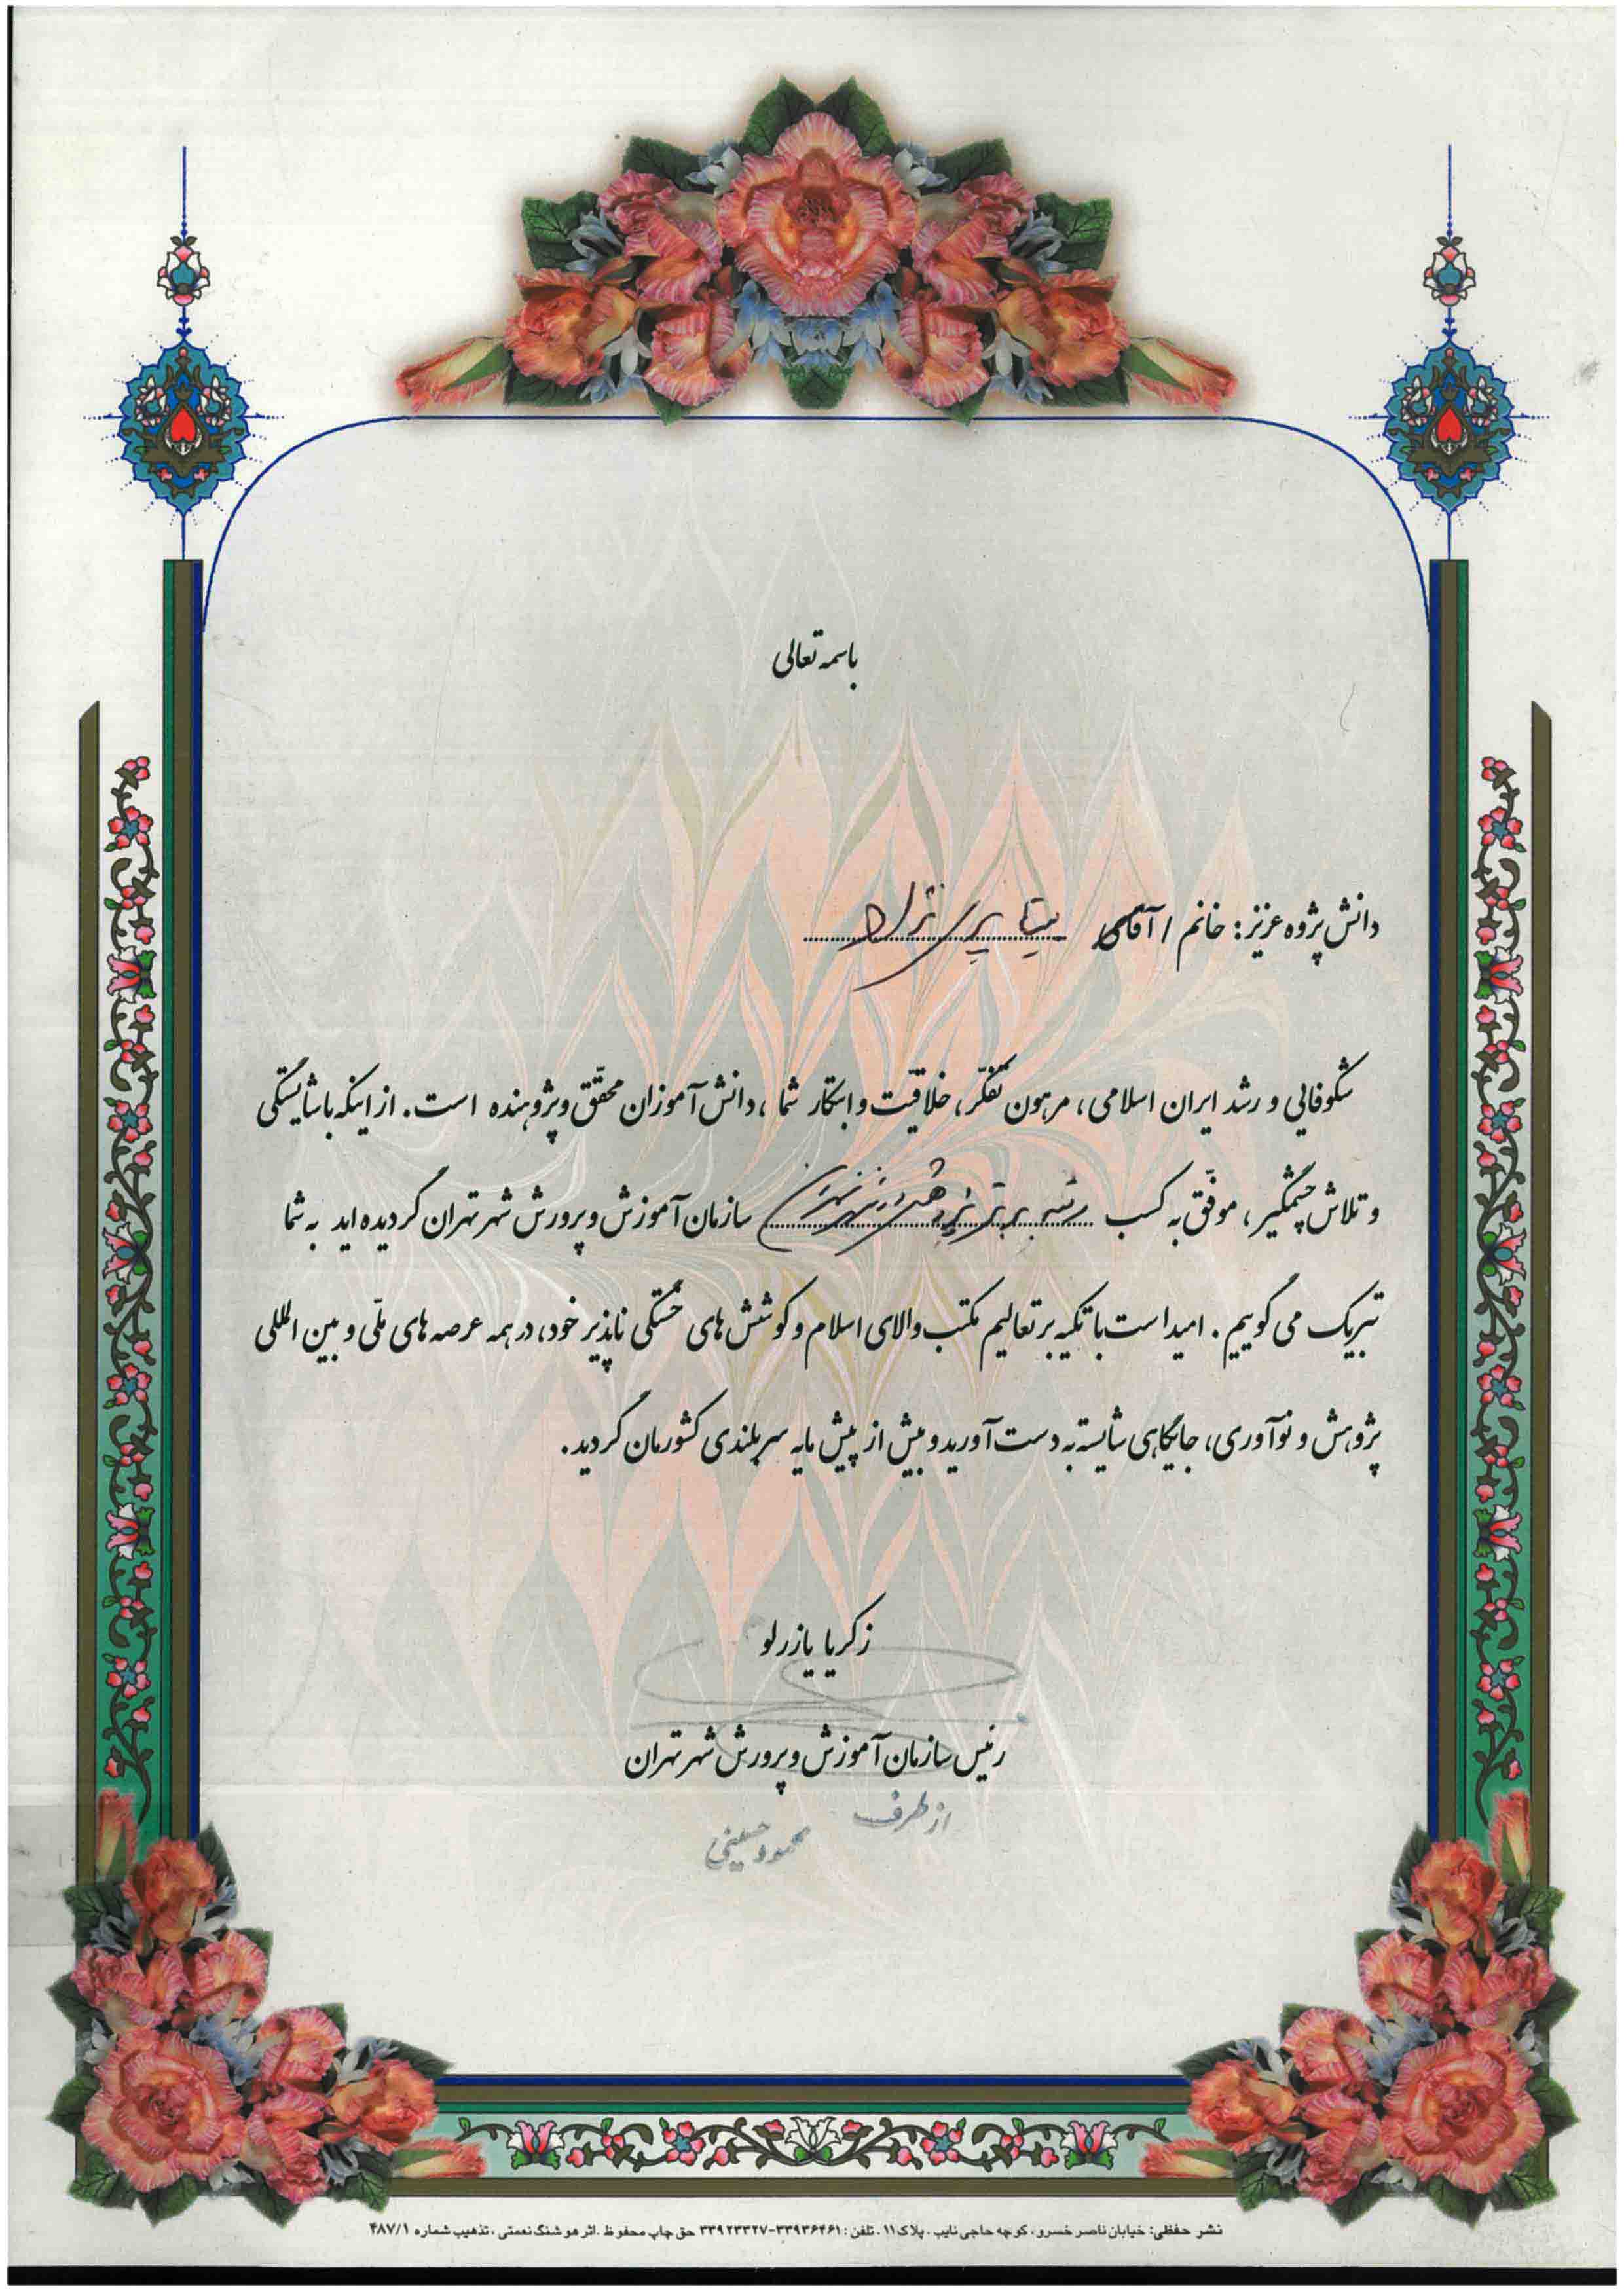 باسمه تعالی
دانش پژوه عزیز: خانم / آقای بیتا پیری نژاد
شکوفایی و رشد ایران اسلامی، مرهون تفکّر، خلاقیّت و ابتکار شما، دانش آموزان محقّق و پژوهنده است. از اینکه با شایستگی
و تلاش چشمگیر، موفّق به کسب رتبه برتر پژوهشی در شهر تهران سازمان آموزش و پرورش شهر تهران گردیده اید به شما
تبریک می گوییم. امید است با تکیه بر تعالیم مکتب والای اسلام و کوشش های خستگی ناپذیر خود، در همه عرصه های ملّی و بین المللی
پژوهش و نوآوری، جایگاهی شایسته به دست آورید و بیش از پیش مایه سربلندی کشورمان گردید.
زکریا یازرلو
رئیس سازمان آموزش و پرورش شهر تهران
از طرف
محمود حسینی
نشر حفظی: خیابان ناصر خسرو، کوچه حاجی نایب، پلاک ۱۱، تلفن: ۳۳۹۳۶۴۶۱-۳۳۹۲۳۳۲۷ حق چاپ محفوظ. اثر هوشنگ نعمتی، تذهیب شماره ۴۸۷/۱